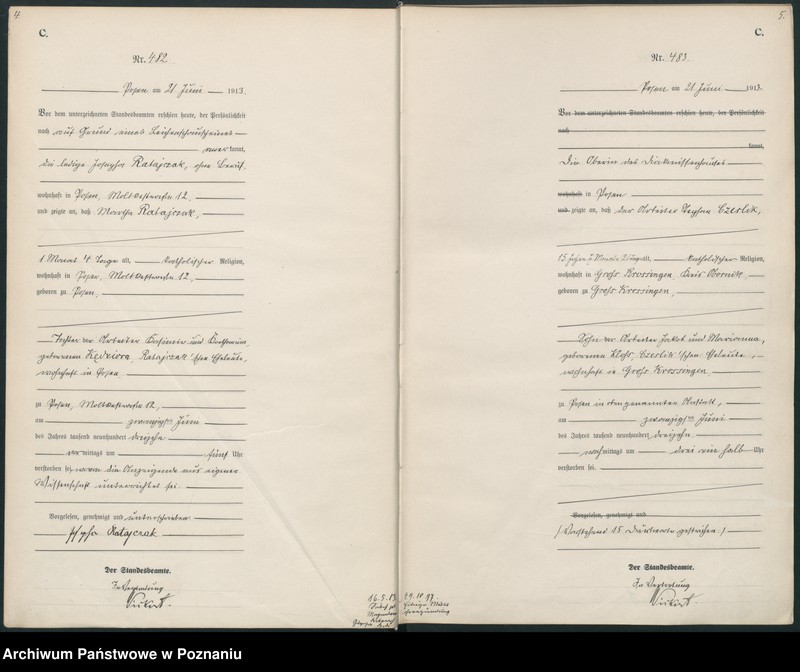 4.
C.
Nr. 482
Posen am 21 Juni 1913.
Vor dem unterzeichneten Standesbeamten erschien heute, der Persönlichkeit
nach auf Grund eines Leichenschauscheines
kannt,
die ledige Josepha Ratajczak, ohne Beruf,
wohnhaft in Posen, Moltkestraße 12,
und zeigte an, daß Martha Ratajczak,
1 Monat 4 Tage alt, katholischer Religion,
wohnhaft in Posen, Moltkestraße 12,
geboren zu Posen,
Tochter der Arbeiter Kasimir und Katharina,
geborenen Kędziora, Ratajczak'schen Eheleute,
wohnhaft in Posen
zu Posen, Moltkestraße 12,
am zwanzigsten Juni
des Jahres tausend neunhundert dreizehn
mittags um fünf Uhr
verstorben sei, wovon die Anzeigende aus eigener
Wissenschaft unterrichtet sei.
Vorgelesen, genehmigt und unterschrieben
Ratajczak
Der Standesbeamte.
In Vertretung
5.
C.
Nr. 483
Posen am 21 Juni 1913.
Vor dem unterzeichneten Standesbeamten erschien heute, der Persönlichkeit
nach
kannt,
Die Oberin des Diakonissenhauses
wohnhaft in Posen
und zeigte an, daß der Arbeiter Czeslik,
15 Jahre alt, katholischer Religion,
wohnhaft in Groß Krossingen, Kreis Obornik,
geboren zu Groß Krossingen,
Sohn der Arbeiter Jakob und Marianna,
geborenen Czeslik'schen Eheleute,
wohnhaft in Groß Krossingen
zu Posen in der genannten Anstalt,
am zwanzigsten Juni
des Jahres tausend neunhundert dreizehn
nachmittags um drei ein halb Uhr
verstorben sei.
Vorgelesen, genehmigt und
(Vorstehend 15 Druckworte gestrichen.)
Der Standesbeamte.
In Vertretung
Archiwum Państwowe w Poznaniu